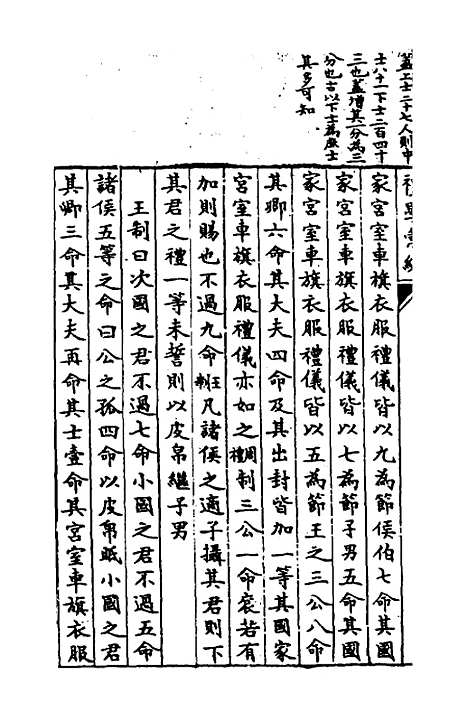 蓋上士二十七人則中
士八十一下士二百四十
三也蓋增其一分為三
分也古以下士為庶士
其多可知
家宮室車旗衣服禮儀皆以九為節侯伯七命其國
家宮室車旗衣服禮儀皆以七為節子男五命其國
家宮室車旗衣服禮儀皆以五為節王之三公八命
其卿六命其大夫四命及其出封皆加一等其國家
宮室車旗衣服禮儀亦如之周禮制三公一命袞若有
加則賜也不過九命王制凡諸侯之適子攝其君則下
其君之禮一等未誓則以皮帛繼子男
王制曰次國之君不過七命小國之君不過五命
諸侯五等之命曰公之孤四命以皮帛眡小國之君
其卿三命其大夫再命其士壹命其宮室車旗衣服